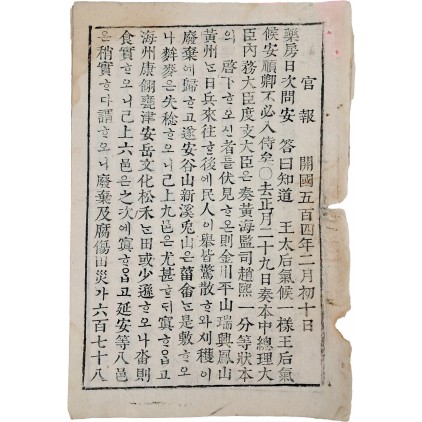 官報 開國五百四年二月初十日
藥房日次問安 答曰知道 王太后氣候一樣王后氣
候安順卿不必入侍矣○去正月二十九日奏本中總理大
臣內務大臣度支大臣은奏黃海監司趙熙一分等狀本
의 啓下ᄒᆞ오신者를伏見ᄒᆞ온則金川平山瑞興鳳山
黃州ᄂᆞᆫ日兵來往ᄒᆞᆫ後에民人이擧皆驚散ᄒᆞ와刈穫이
廢棄에歸ᄒᆞ고遂安谷山新溪兎山은菑畬에是敷ᄒᆞ오
나麰麥은失稔ᄒᆞ오니己上九邑은尤甚에寘ᄒᆞ옵고
海州康翎甕津安岳文化松禾ᄂᆞᆫ田或少遜ᄒᆞ오나畓則
食實ᄒᆞ오니己上六邑은之次에寘ᄒᆞ옵고延安等八邑
은稍實ᄒᆞ다謂ᄒᆞ오며廢棄及腐傷田災가六百七十八